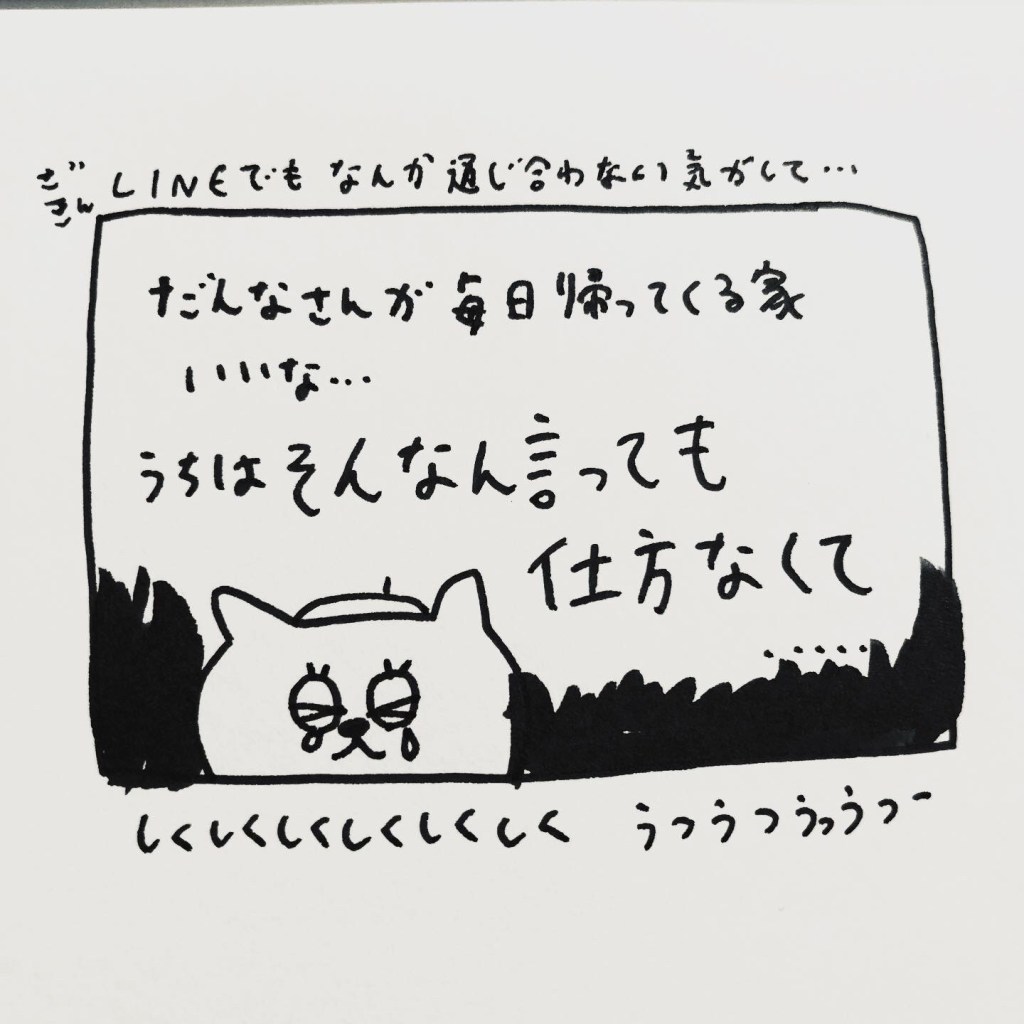 ざんさん
LINEでもなんか通じ合わない気がして…
だんなさんが毎日帰ってくる家
いいな…
うちはそんなん言っても
仕方なくて
……
しくしくしくしくしくしく うっうっうっうっー